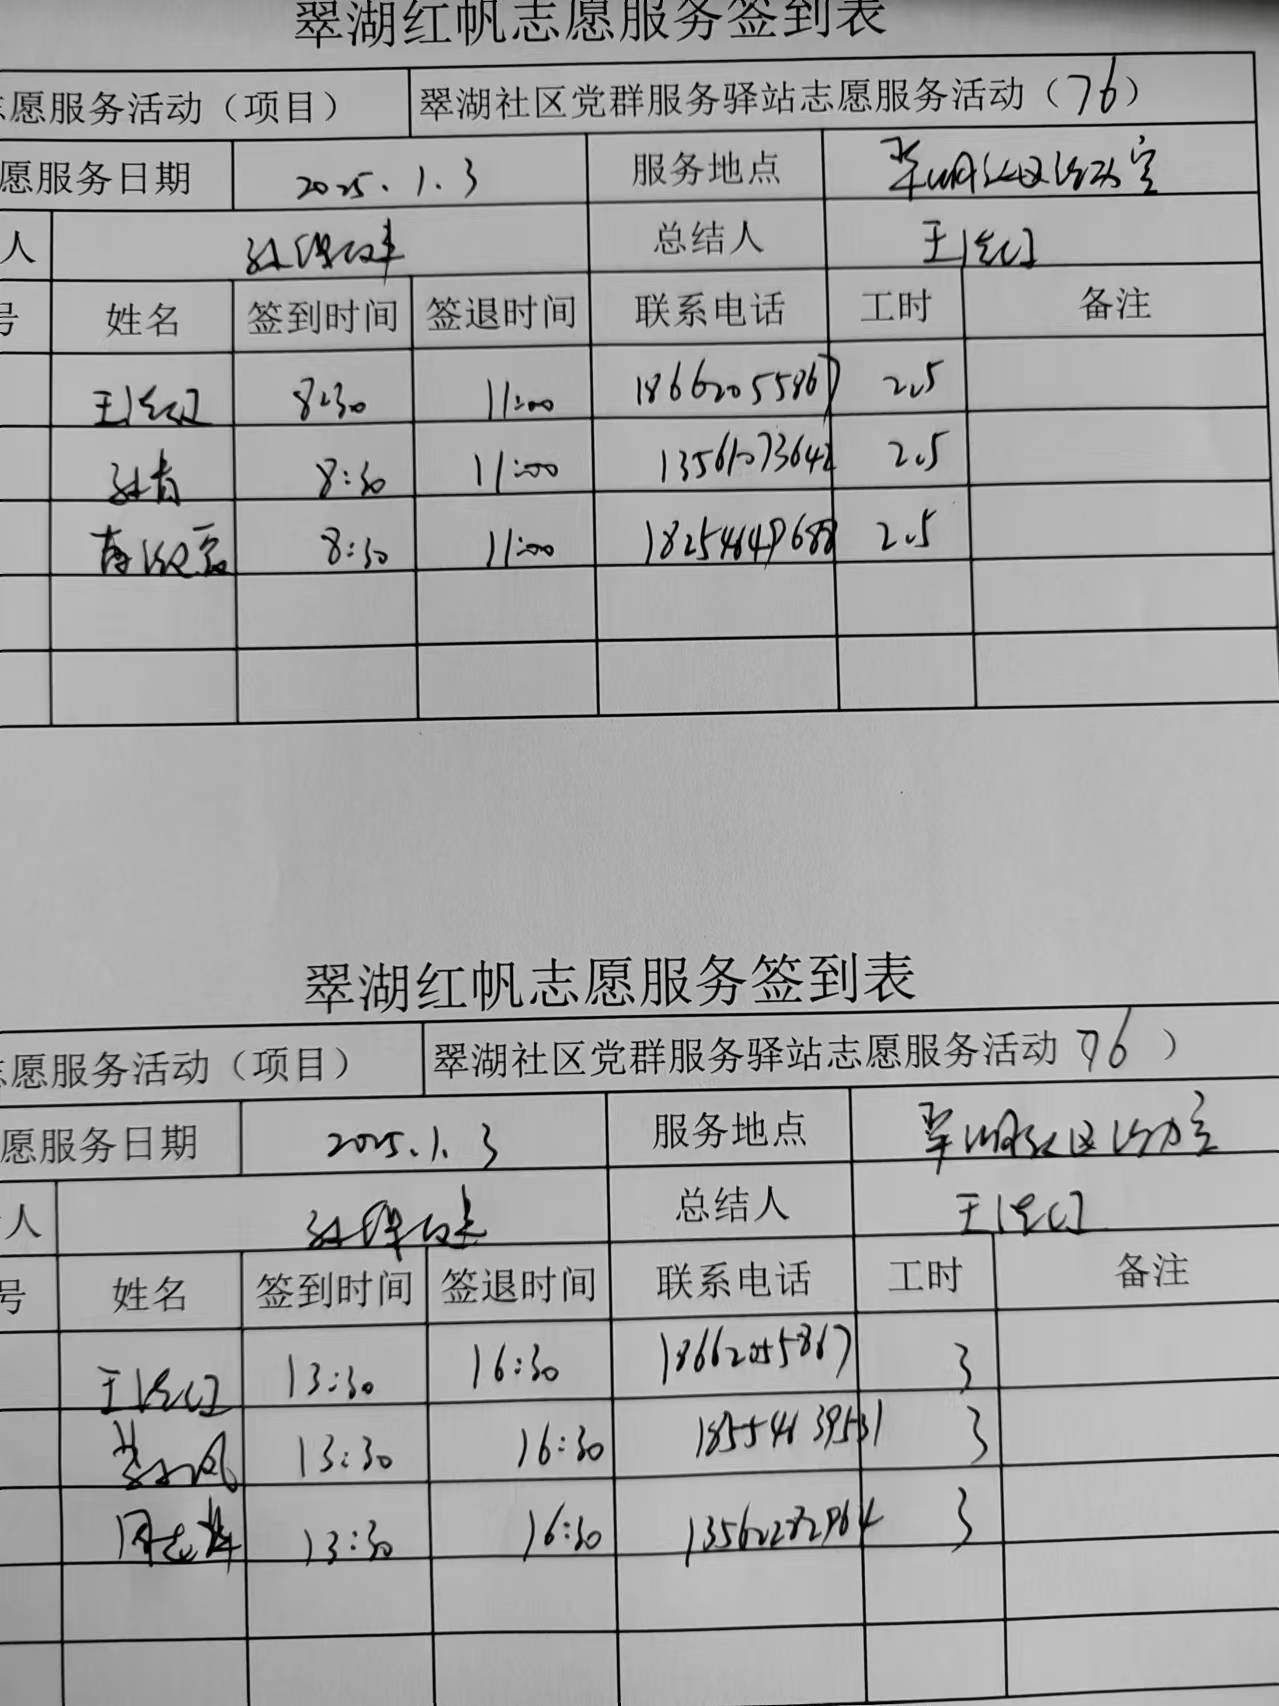 翠湖红帆志愿服务签到表
志愿服务活动（项目） 翠湖社区党群服务驿站志愿服务活动（76）
愿服务日期 2025.1.3 服务地点 翠湖社区活动室
人 总结人
号 姓名 签到时间 签退时间 联系电话 工时 备注
8:30 11:00 18662055867 2.5
8:30 11:00 2.5
8:30 11:00 18254649688 2.5
翠湖红帆志愿服务签到表
志愿服务活动（项目） 翠湖社区党群服务驿站志愿服务活动 76）
愿服务日期 2025.1.3 服务地点 翠湖社区活动室
人 总结人
号 姓名 签到时间 签退时间 联系电话 工时 备注
13:30 16:30 18662055867 3
13:30 16:30 3
13:30 16:30 13562282964 3